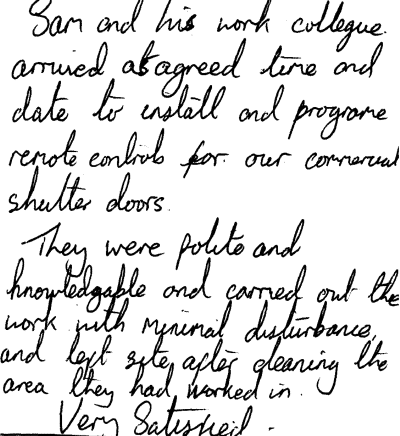 Sam and his work collegue
arrived as agreed time and
date to install and programe
remote controls for our commercial
shutter doors.
They were polite and
knowledgable and carried out the
work with minimal disturbance,
and left site after cleaning the
area they had worked in.
Very Satisfied.